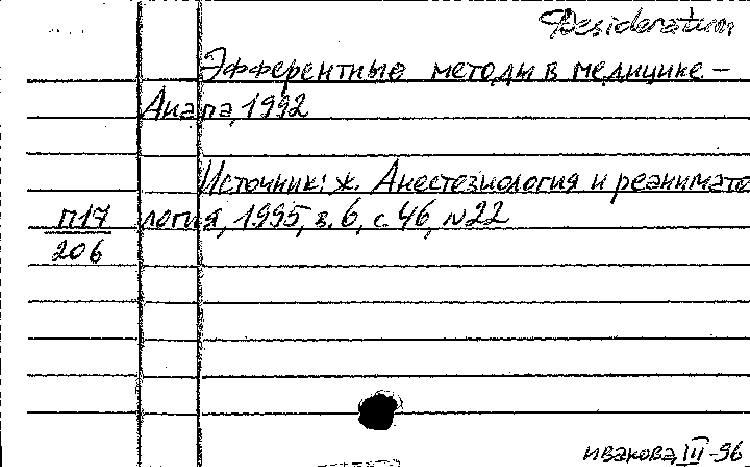 Desideratum
Эфферентные методы в медицине –
Анапа, 1992
Источник: ж. Анестезиология и реанимато
логия, 1995, в. 6, с. 46, N22
П17
206
Ивакова, III-96